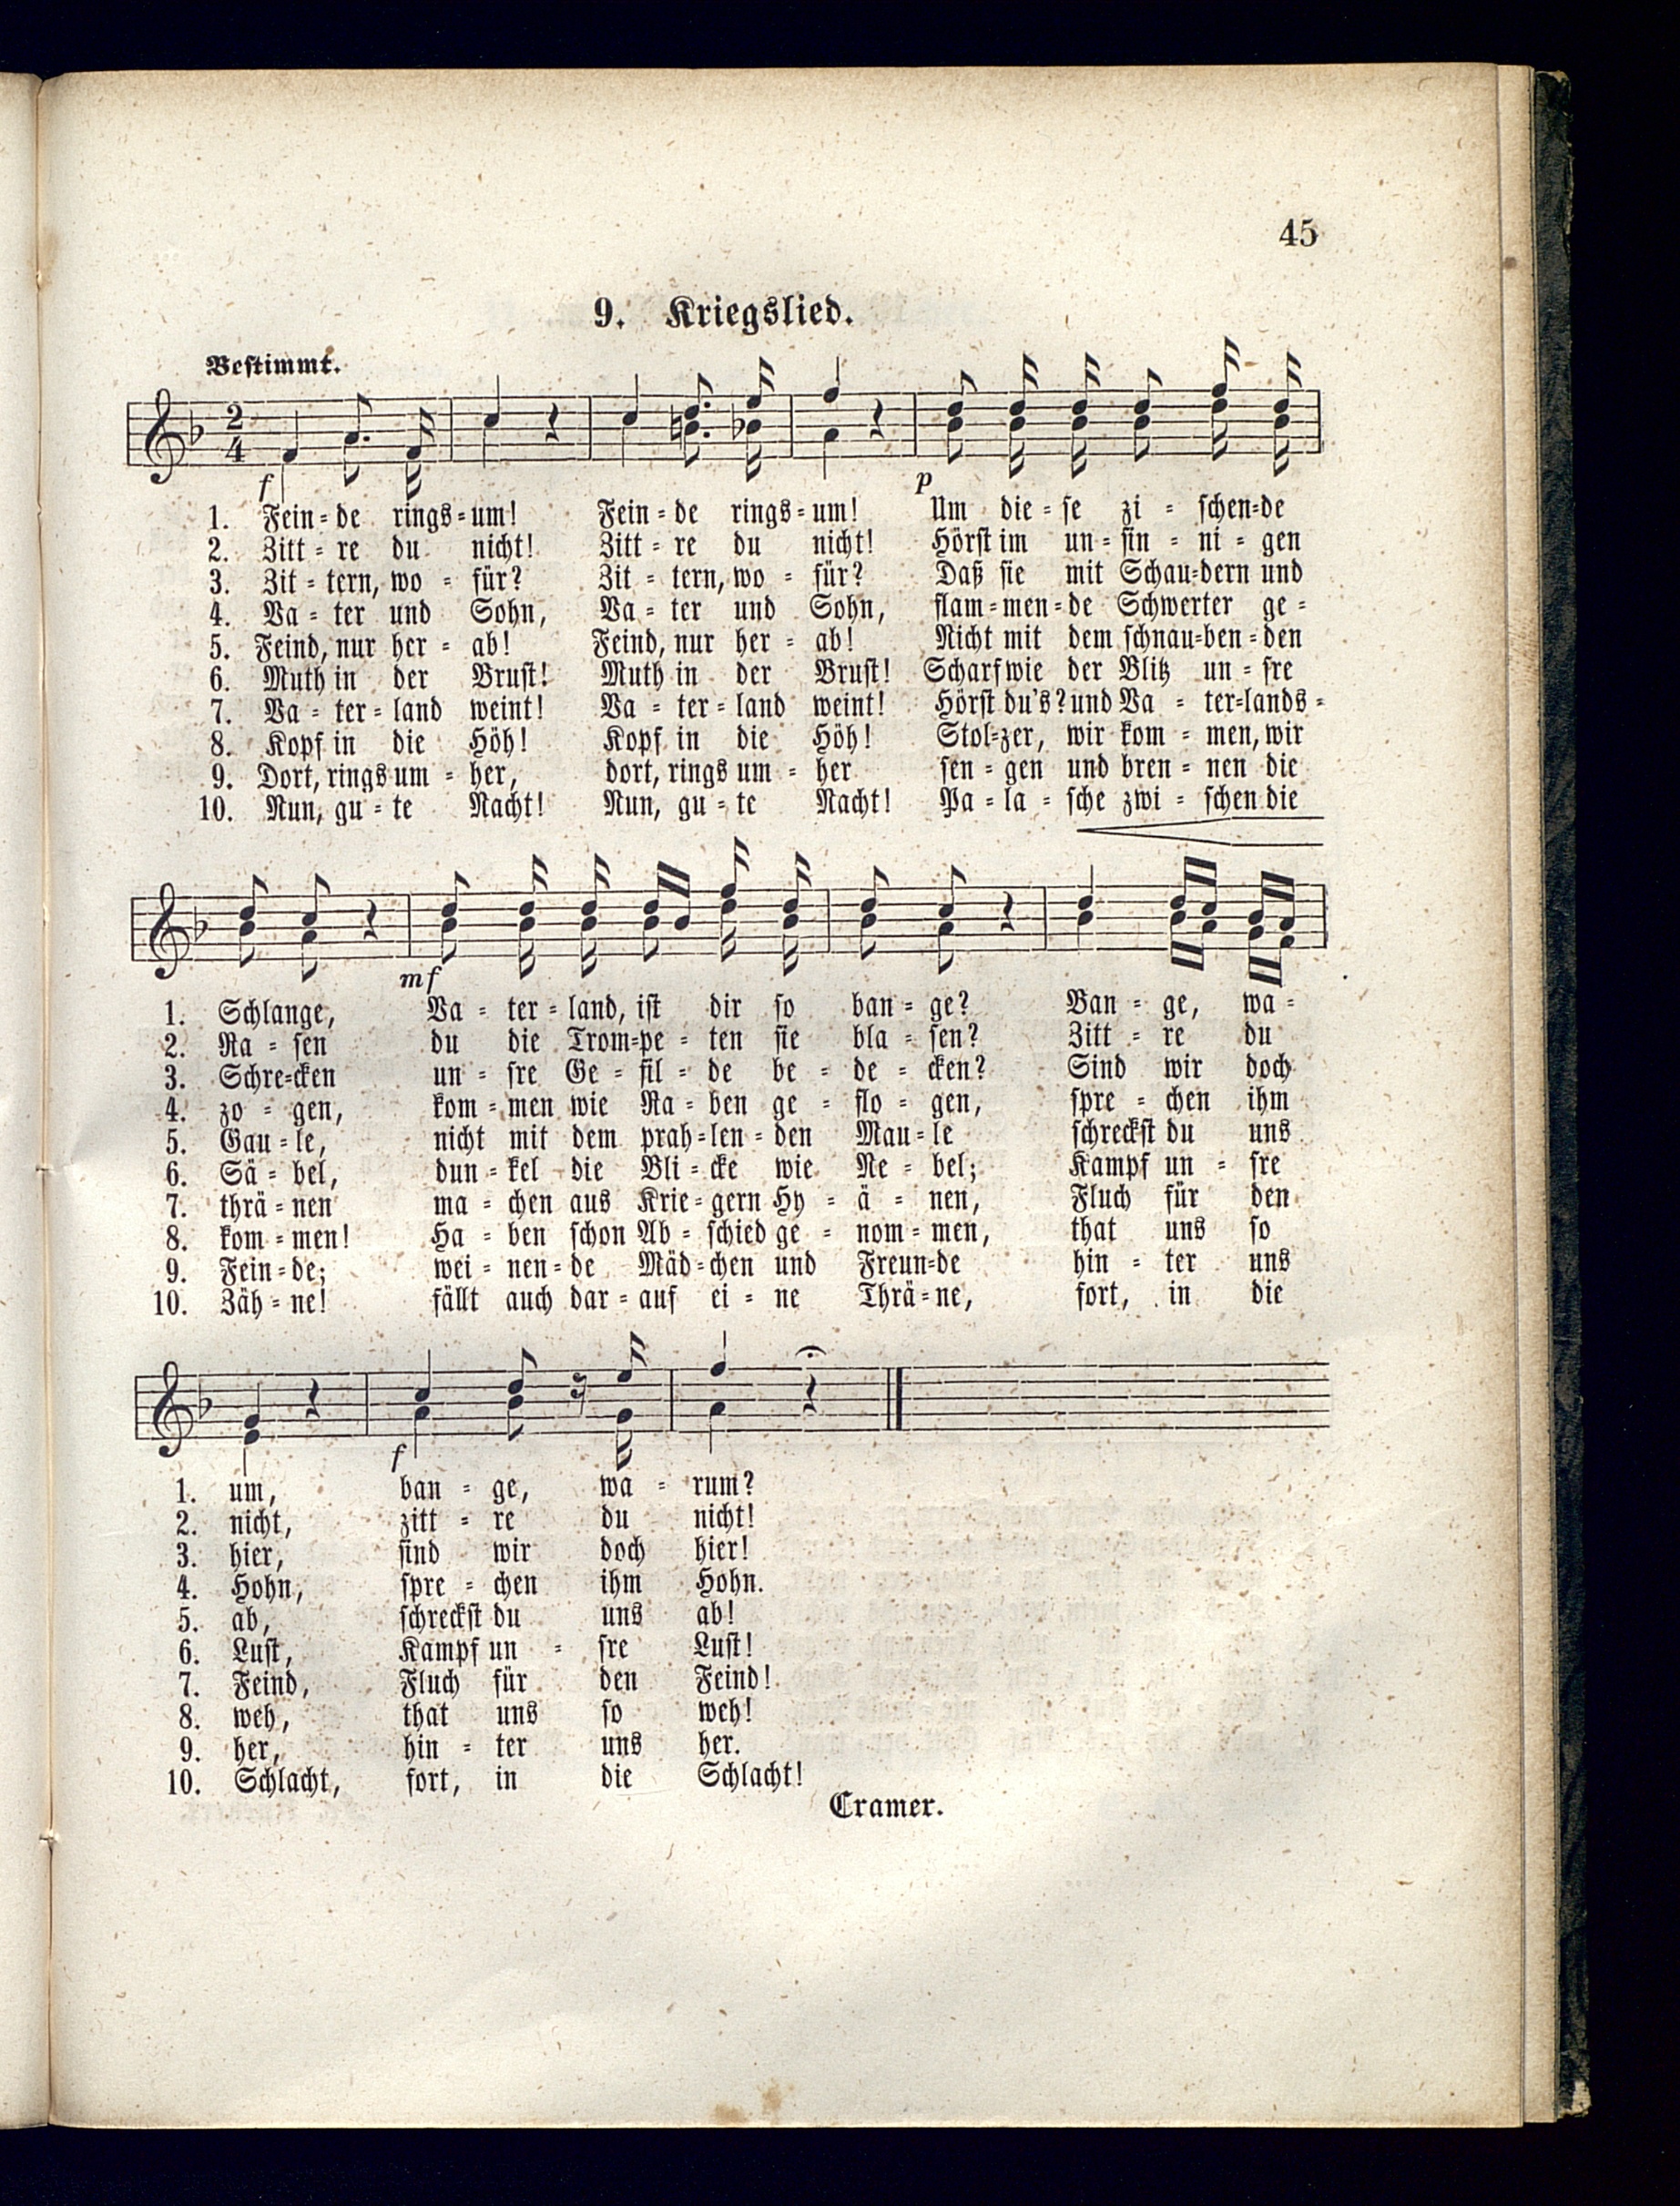 45
9. Kriegslied.
Bestimmt.
2
4
f
p
1. Fein-de rings-um! Fein-de rings-um! Um die-se zi-schen-de
2. Zitt-re du nicht! Zitt-re du nicht! Hörst im un-sin-ni-gen
3. Zit-tern, wo-für? Zit-tern, wo-für? Daß sie mit Schau-dern und
4. Va-ter und Sohn, Va-ter und Sohn, flam-men-de Schwerter ge-
5. Feind, nur her-ab! Feind, nur her-ab! Nicht mit dem schnau-ben-den
6. Muth in der Brust! Muth in der Brust! Scharf wie der Blitz un-sre
7. Va-ter-land weint! Va-ter-land weint! Hörst du's? und Va-ter-lands-
8. Kopf in die Höh! Kopf in die Höh! Stol-zer, wir kom-men, wir
9. Dort, rings um-her, dort, rings um-her sen-gen und bren-nen die
10. Nun, gu-te Nacht! Nun, gu-te Nacht! Pa-la-sche zwi-schen die
mf
1. Schlange, Va-ter-land, ist dir so ban-ge? Ban-ge, wa-
2. Ra-sen du die Trom-pe-ten sie bla-sen? Zitt-re du
3. Schre-cken un-sre Ge-fil-de be-de-cken? Sind wir doch
4. zo-gen, kom-men wie Ra-ben ge-flo-gen, spre-chen ihm
5. Gau-le, nicht mit dem prah-len-den Mau-le schreckst du uns
6. Sä-bel, dun-kel die Bli-cke wie Ne-bel; Kampf un-sre
7. thrä-nen ma-chen aus Krie-gern Hy-ä-nen, Fluch für den
8. kom-men! Ha-ben schon Ab-schied ge-nom-men, that uns so
9. Fein-de; wei-nen-de Mäd-chen und Freun-de hin-ter uns
10. Zäh-ne! fällt auch dar-auf ei-ne Thrä-ne, fort, in die
f
1. um, ban-ge, wa-rum?
2. nicht, zitt-re du nicht!
3. hier, sind wir doch hier!
4. Hohn, spre-chen ihm Hohn.
5. ab, schreckst du uns ab!
6. Lust, Kampf un-sre Lust!
7. Feind, Fluch für den Feind!
8. weh, that uns so weh!
9. her, hin-ter uns her.
10. Schlacht, fort, in die Schlacht!
Cramer.